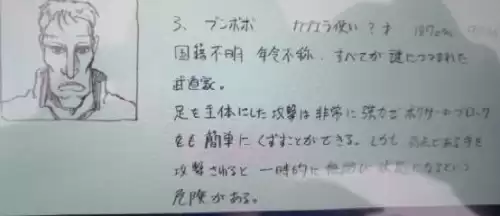 3、ブンボボ 使い ?才 187cm
国籍不明 年令不称、すべてが謎につつまれた
武道家。
足を主体にした攻撃は非常に強力で ボクサーのブロック
をも簡単にくずすことができる。しかし 弱点である手を
攻撃されると 一時的に 状態になるという
危険がある。